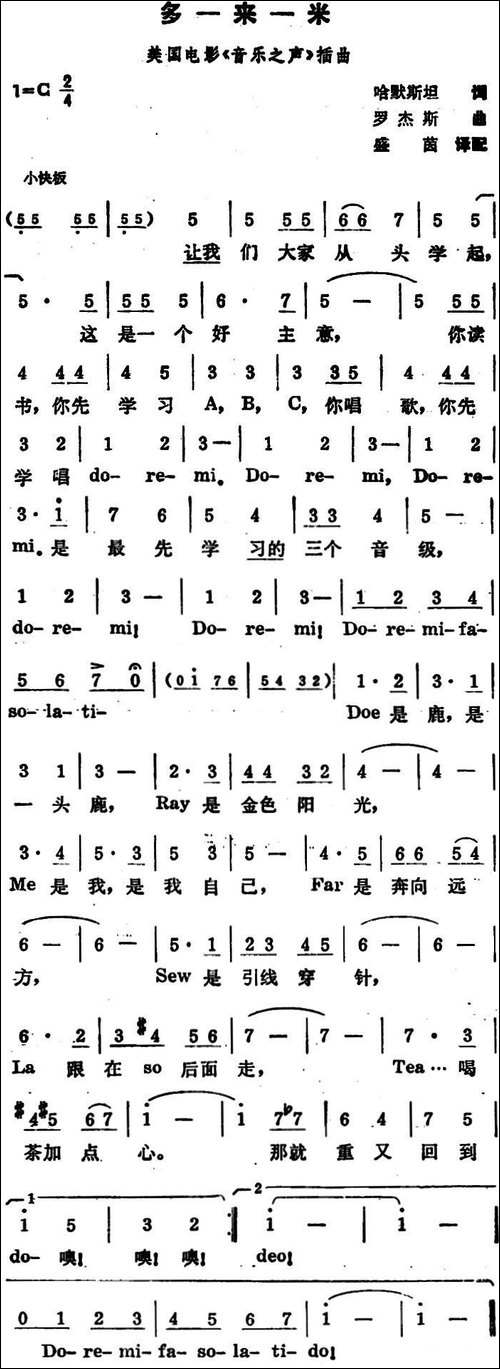 多一来一米
美国电影《音乐之声》插曲
1=C 2/4
哈默斯坦 词
罗杰斯 曲
盛茵 译配
小快板
(5 5 5 5 | 5 5) 5 | 5 5 5 | 6 6 7 | 5 5 |
让我 们 大家 从 头 学 起,
5 · 5 | 5 5 5 | 6 · 7 | 5 — | 5 5 5 |
这 是一 个 好 主 意, 你读
4 4 4 | 4 5 | 3 3 | 3 3 5 | 4 4 4 |
书, 你先 学 习 A, B, C, 你唱 歌, 你先
3 2 | 1 2 | 3 — | 1 2 | 3 — | 1 2
学 唱 do- re- mi。 Do- re- mi, Do- re-
3 · i | 7 6 | 5 4 | 3 3 4 | 5 —
mi。是 最 先 学 习的 三个 音 级,
1 2 | 3 — | 1 2 | 3 — | 1 2 3 4 |
do- re- mi! Do- re- mi! Do- re- mi- fa-
5 6 7 0 | (0 i 7 6 | 5 4 3 2) | 1 · 2 | 3 · 1 |
so- la- ti- Doe 是 鹿, 是
3 1 | 3 — | 2 · 3 | 4 4 3 2 | 4 — | 4 — |
一 头 鹿, Ray 是 金色 阳 光,
3 · 4 | 5 · 3 | 5 3 | 5 — | 4 · 5 | 6 6 5 4 |
Me 是 我, 是 我 自 己, Far 是 奔向 远
6 — | 6 — | 5 · 1 | 2 3 4 5 | 6 — | 6 — |
方, Sew 是 引线 穿 针,
6 · 2 | 3 #4 5 6 | 7 — | 7 — | 7 · 3 |
La 跟 在 so 后面 走, Tea… 喝
#4 #5 6 7 | i — | i 7 b7 | 6 4 | 7 5 |
茶加 点 心。 那就 重 又 回 到
1 2
i 5 | 3 2 :| i — | i — |
do- 噢! 噢! 噢! deo!
0 1 2 3 | 4 5 6 7 | i — | i — ‖
Do- re- mi- fa- so- la- ti- do!